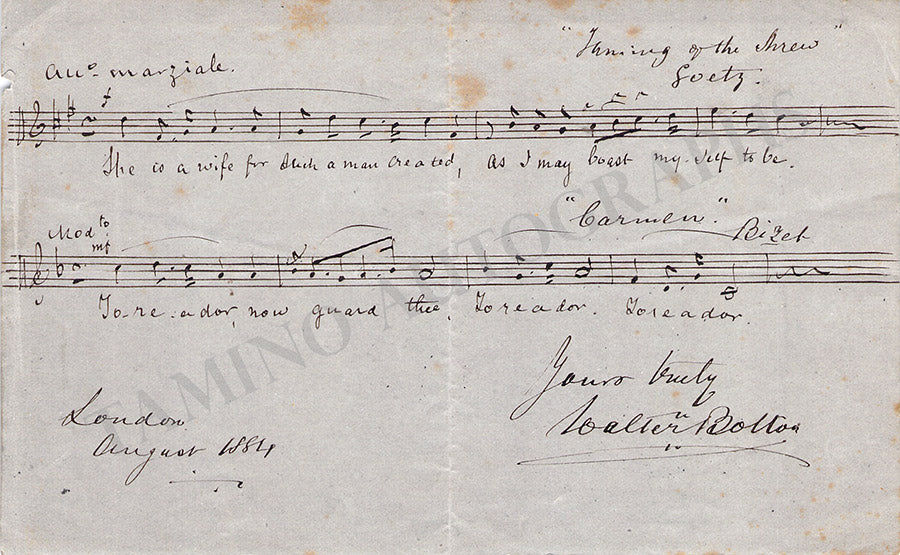 "Taming of the Shrew"
Goetz.
Allo. marziale.
f
She is a wife for such a man created, as I may boast my-self to be.
"Carmen".
Bizet
Modto
mf
To-re-ador, now guard thee, Toreador. Toreador.
Yours truly
Walter Bolton
London
August 1884
TAMINO AUTOGRAPHS